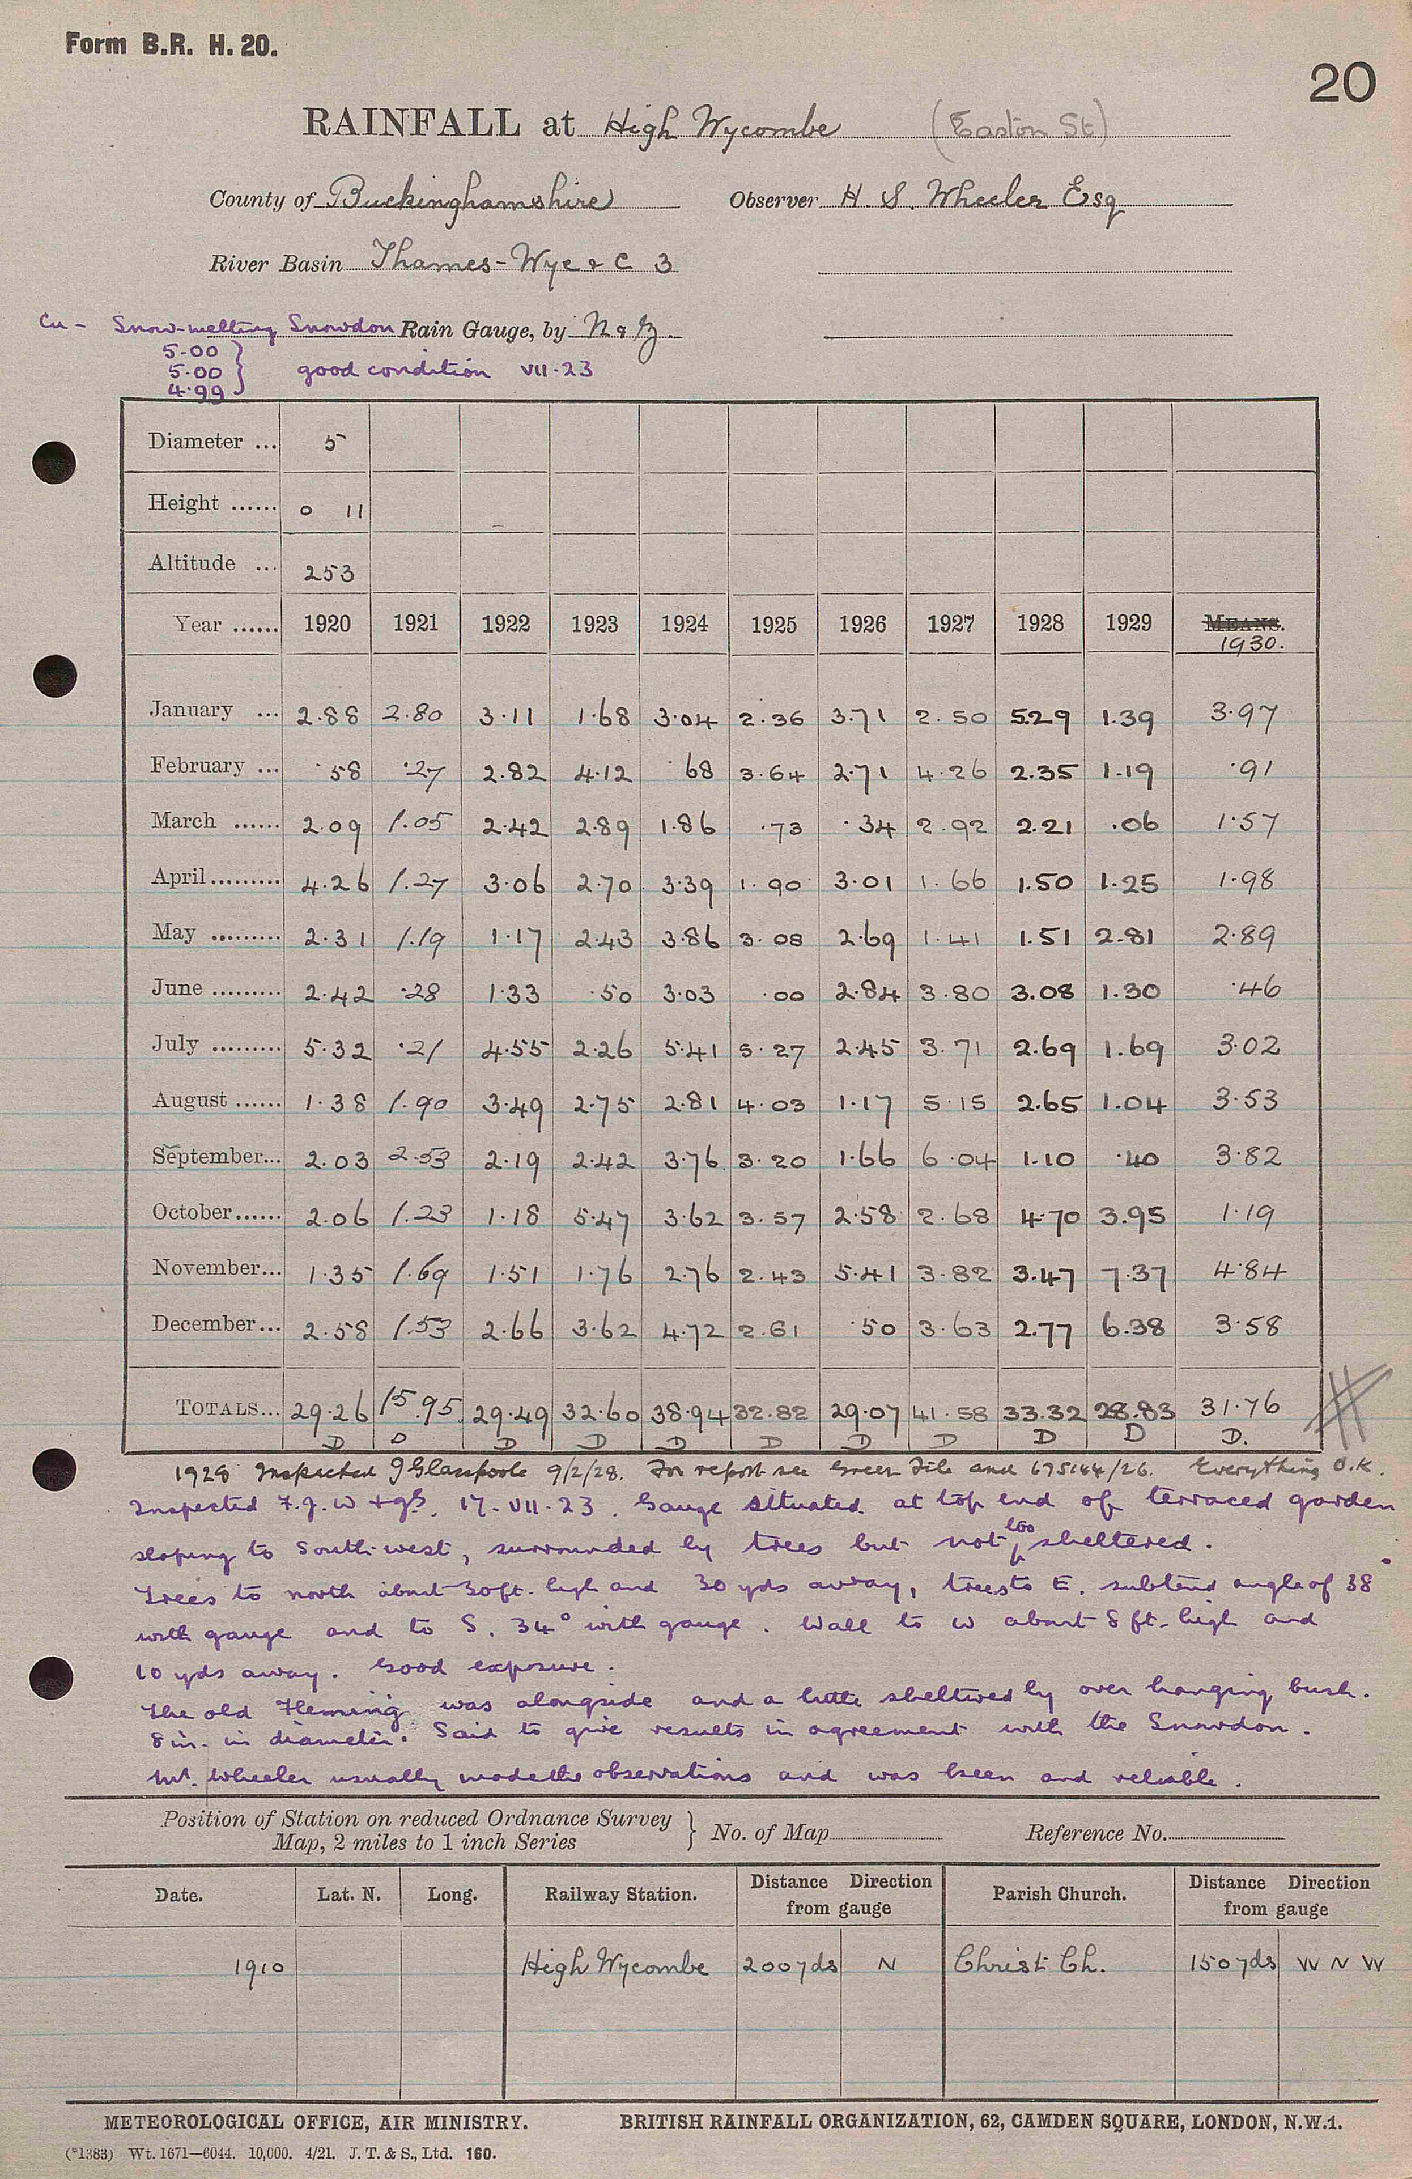 Form B.R. H. 20.
20
RAINFALL at High Wycombe (Easton St)
County of Buckinghamshire Observer H. S. Wheeler Esq
River Basin Thames - Wye & C 3
Cu - Snow-melting Snowdon Rain Gauge, by N & Z.
5.00
5.00 } good condition VII.23
4.99
Diameter ... 5
Height ...... 0 11
Altitude ... 253
Year ...... 1920 1921 1922 1923 1924 1925 1926 1927 1928 1929 MEANS.
1930.
January ... 2.88 2.80 3.11 1.68 3.04 2.36 3.71 2.50 5.29 1.39 3.97
February ... .58 .27 2.82 4.12 .68 3.64 2.71 4.26 2.35 1.19 .91
March ...... 2.09 1.05 2.42 2.89 1.86 .73 .34 2.92 2.21 .06 1.57
April......... 4.26 1.27 3.06 2.70 3.39 1.90 3.01 1.66 1.50 1.25 1.98
May ......... 2.31 1.19 1.17 2.43 3.86 3.08 2.69 1.41 1.51 2.81 2.89
June ......... 2.42 .28 1.33 .50 3.03 .00 2.84 3.80 3.08 1.30 .46
July ......... 5.32 .21 4.55 2.26 5.41 5.27 2.45 3.71 2.69 1.69 3.02
August ...... 1.38 1.90 3.49 2.75 2.81 4.03 1.17 5.15 2.65 1.04 3.53
September... 2.03 2.53 2.19 2.42 3.76 3.20 1.66 6.04 1.10 .40 3.82
October...... 2.06 1.23 1.18 5.47 3.62 3.57 2.58 2.68 4.70 3.95 1.19
November... 1.35 1.69 1.51 1.76 2.76 2.43 5.41 3.82 3.47 7.37 4.84
December... 2.58 1.53 2.66 3.62 4.72 2.61 .50 3.63 2.77 6.38 3.58
TOTALS... 29.26 15.95 29.49 32.60 38.94 32.82 29.07 41.58 33.32 28.83 31.76
D D D D D D D D D D D.
1928 Inspected J Glasspoole 9/2/28. For report see Green File and 675144/26. Everything O.K.
Inspected F.J.W + JG. 17.VII.23. Gauge situated at top end of terraced garden
sloping to South-west, surrounded by trees but not too sheltered.
Trees to north about 30ft. high and 30 yds away, trees to E. subtend angle of 38°
with gauge and to S. 34° with gauge. Wall to W about 8 ft. high and
10 yds away. Good exposure.
The old Fleming was alongside and a little sheltered by over hanging bush.
8 in. in diameter. Said to give results in agreement with the Snowdon.
Mr. Wheeler usually made the observations and was keen and reliable.
Position of Station on reduced Ordnance Survey
Map, 2 miles to 1 inch Series } No. of Map Reference No.
Date. Lat. N. Long. Railway Station. Distance Direction from gauge Parish Church. Distance Direction from gauge
1910 High Wycombe 200 yds N Christ Ch. 150 yds W N W
METEOROLOGICAL OFFICE, AIR MINISTRY. BRITISH RAINFALL ORGANIZATION, 62, CAMDEN SQUARE, LONDON, N.W.1.
(*1383) Wt. 1671—6044. 10,000. 4/21. J. T. & S., Ltd. 160.